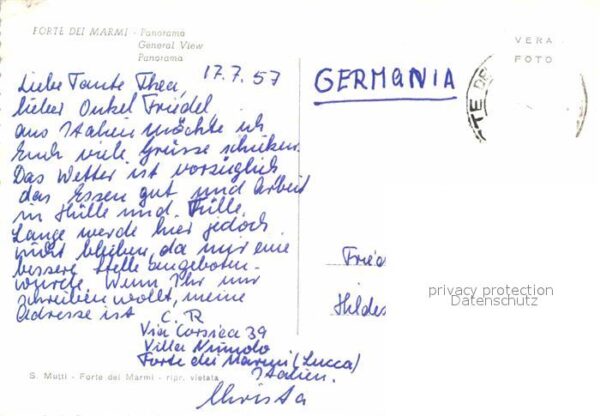 FORTE DEI MARMI - Panorama
General View
Panorama
VERA
FOTO
17.7.57
Liebe Tante Thea,
lieber Onkel Friedel
aus Italien möchte ich
Euch viele Grüsse schicken.
Das Wetter ist vorzüglich
das Essen gut und Arbeit
in Hülle und Fülle.
Lange werde hier jedoch
nicht bleiben, da mir eine
bessere Stelle angeboten
wurde. Wenn Ihr mir
schreiben wollt, meine
Adresse ist C. R
Via Corsica 39
Villa
Forte dei Marmi (Lucca)
Italien.
Christa
GERMANIA
TE DE
Fried
Hildes
privacy protection
Datenschutz
S. Mutti - Forte dei Marmi - ripr. vietata